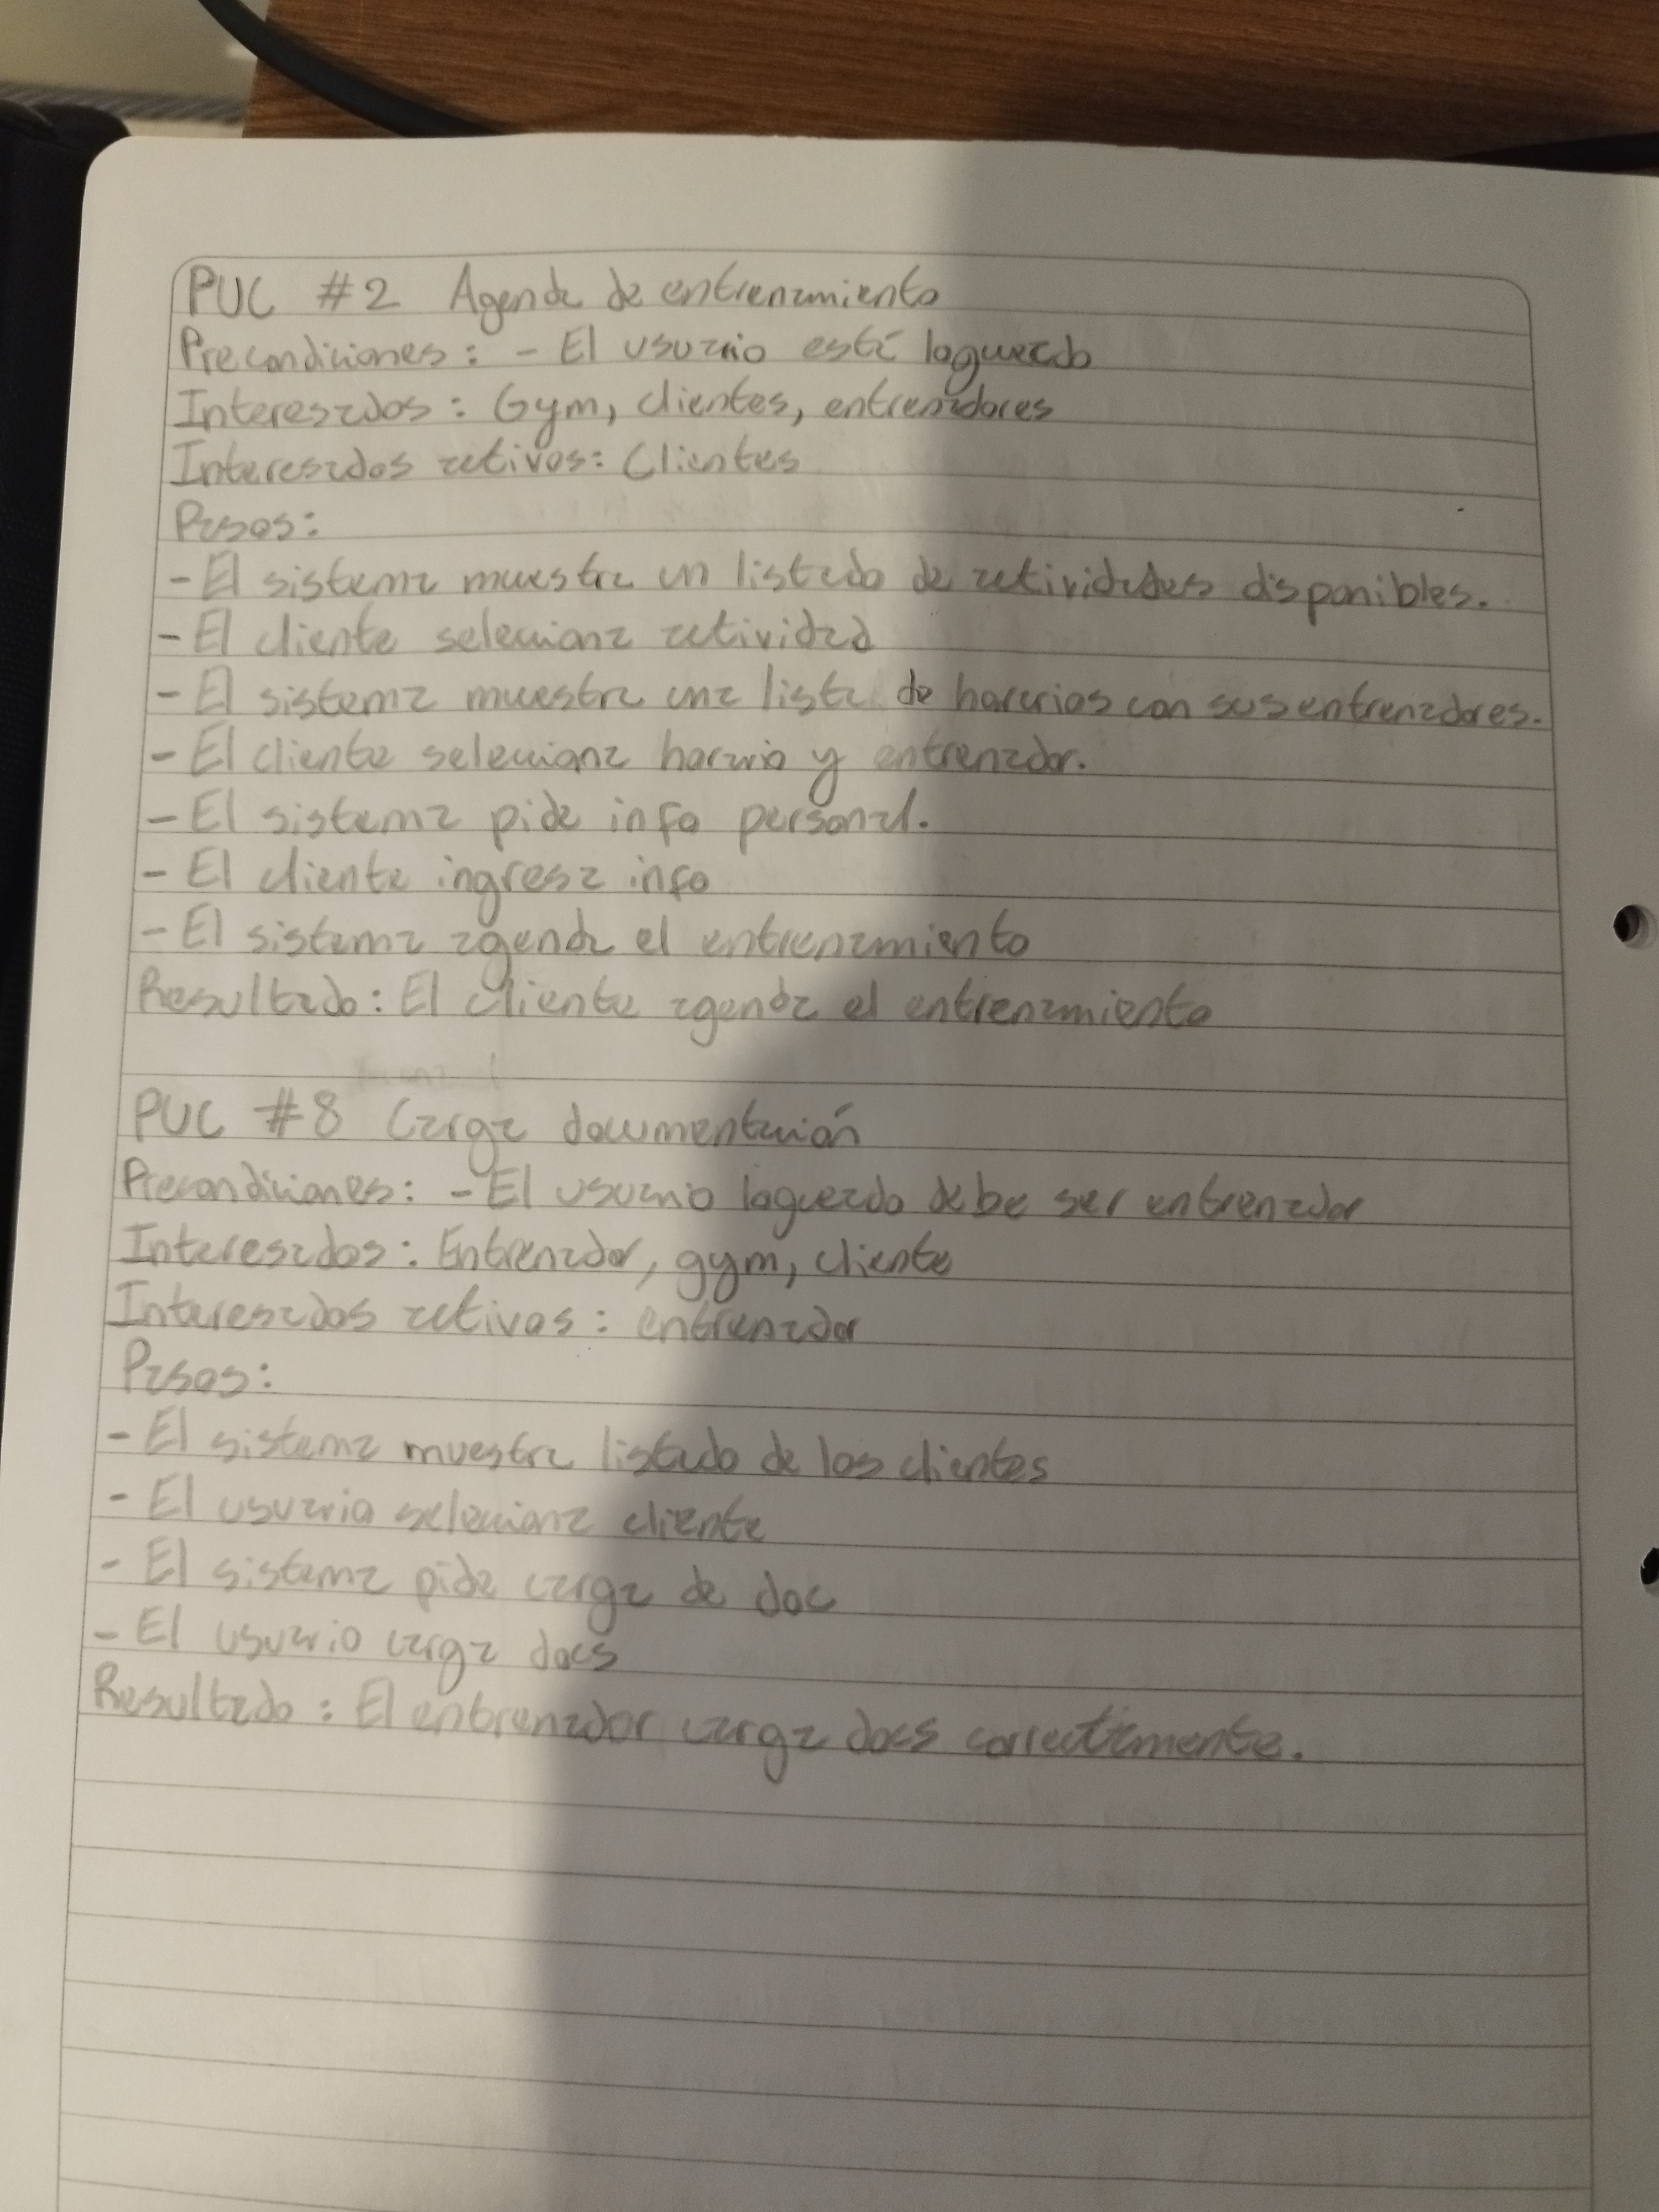 PUC #2 Agenda de entrenamiento
Precondiciones: - El usuario está logueado
Interesados: Gym, clientes, entrenadores
Interesados activos: Clientes
Pasos:
- El sistema muestra un listado de actividades disponibles.
- El cliente selecciona actividad
- El sistema muestra una lista de horarios con sus entrenadores.
- El cliente selecciona horario y entrenador.
- El sistema pide info personal.
- El cliente ingresa info
- El sistema agenda el entrenamiento
Resultado: El cliente agenda el entrenamiento
PUC #8 Carga documentación
Precondiciones: - El usuario logueado debe ser entrenador
Interesados: Entrenador, gym, cliente
Interesados activos: entrenador
Pasos:
- El sistema muestra listado de los clientes
- El usuario selecciona cliente
- El sistema pide carga de doc
- El usuario carga docs
Resultado: El entrenador carga docs correctamente.